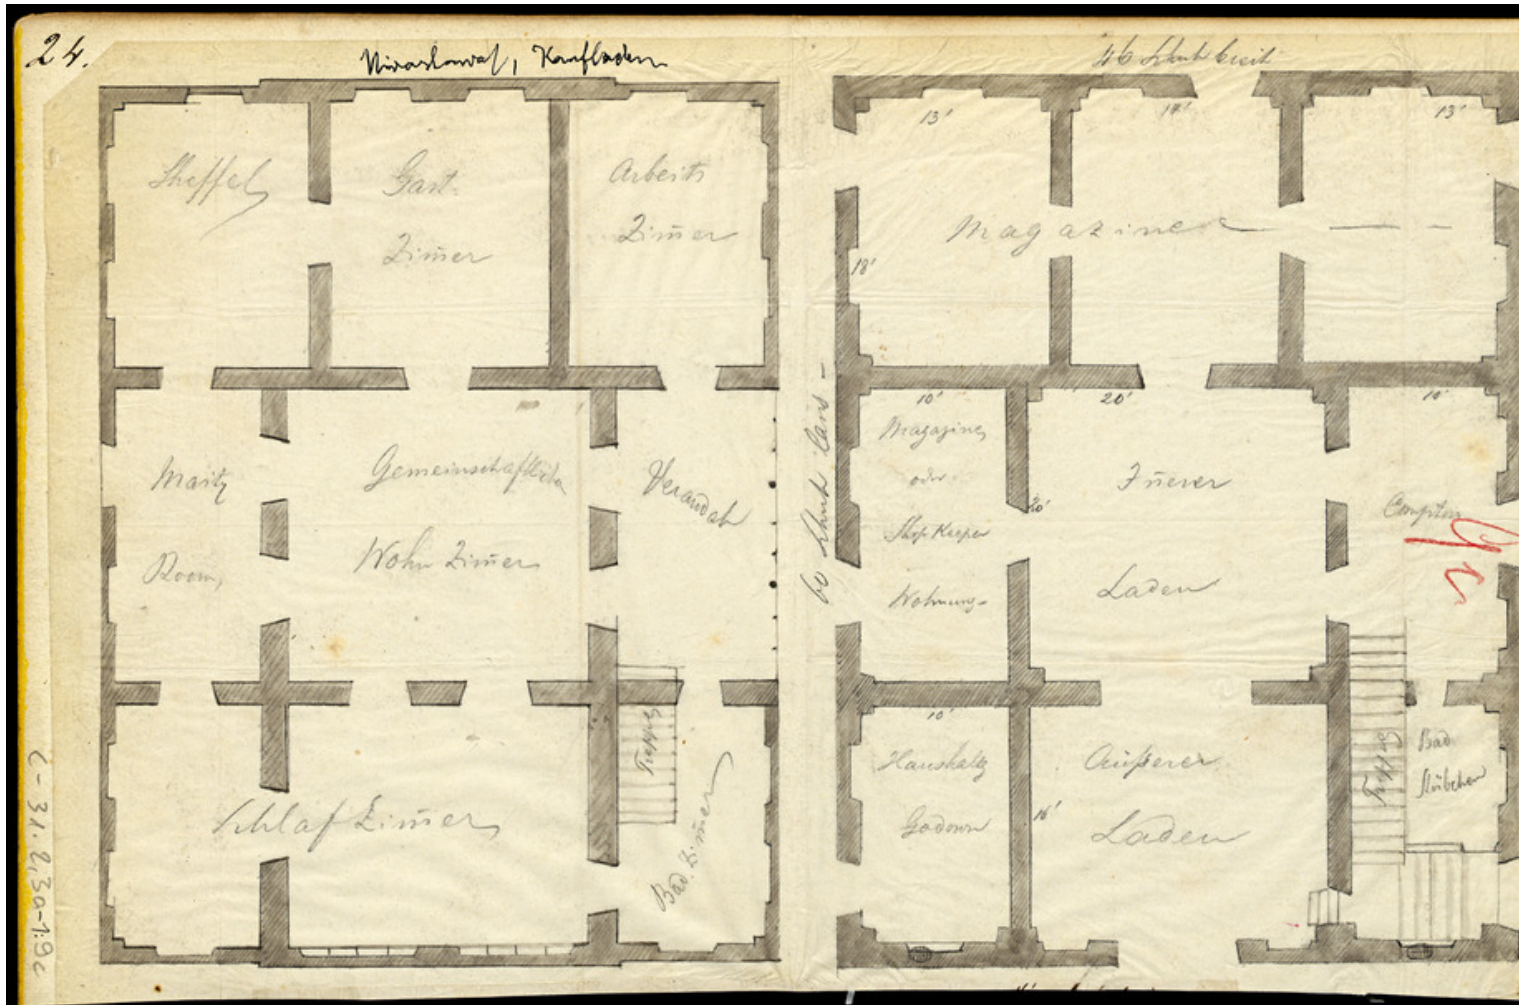 24.
Kaufladen
46 Schuh breit
Sheffel
Gast-
Zim̄er
Arbeits
Zim̄er
Room,
Gemeinschaftliches
Wohn Zim̄er
Verandah
Schlaf Zim̄er
Treppe
Bad. Zim̄er
60 Schuh lang -
13'
14'
13'
18'
Magazine
10'
20'
10'
Magazine
oder
Shop Keeper
Wohnung-
20'
In̄erer
Laden
Comptoir
10'
Haushalts
Godown
16'
Äußerer
Laden
Treppe
Bad
Stübchen
C-31.2,3a-1.9c